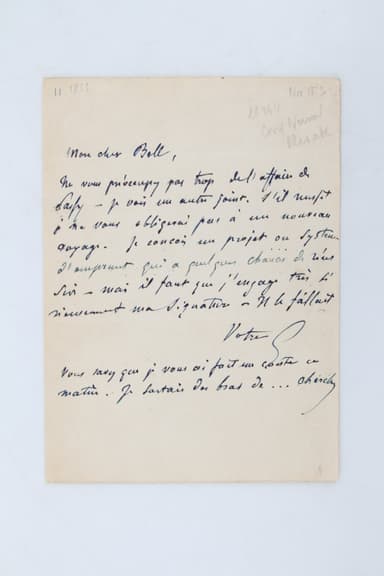 11. 1853
No 153
Mon cher Bell,
Ne vous préoccupez pas trop de l'affaire de
Passy – je vois un autre joint. S'il réussit
je ne vous obligerai pas à un nouveau
voyage. Je conçois un projet ou système
d'emprunt qui a quelques chances de réus
sir – mais il faut que j'engage très sé
rieusement ma signature – Il le fallait
Votre
Vous savez que je vous ai fait un conte ce
matin. Je sortais des bras de ...